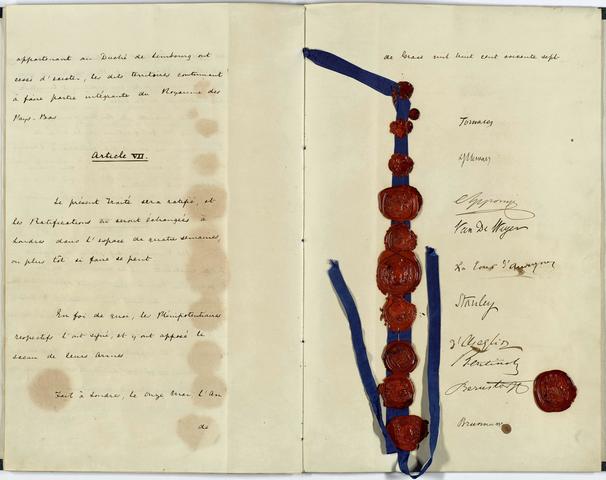 appartenant au Duché de Limbourg ont
cessé d'exister, les dits territoires continuant
à faire partie intégrante du Royaume des
Pays-Bas
Article VII.
Le présent Traité sera ratifié, et
les Ratifications en seront échangées à
Londres dans l'espace de quatre semaines,
ou plus tôt si faire se peut
En foi de quoi, les Plénipotentiaires
respectifs l'ont signé, et y ont apposé le
sceau de leurs Armes
Fait à Londres, le onze Mai L'An
de
de Grace mil huit cent soixante sept.
Tornaco
Apponyi
Van De Weyer
La Tour d'Auvergne
Stanley
d'Azeglio
Bentinck
Bernstorff
Brunnow